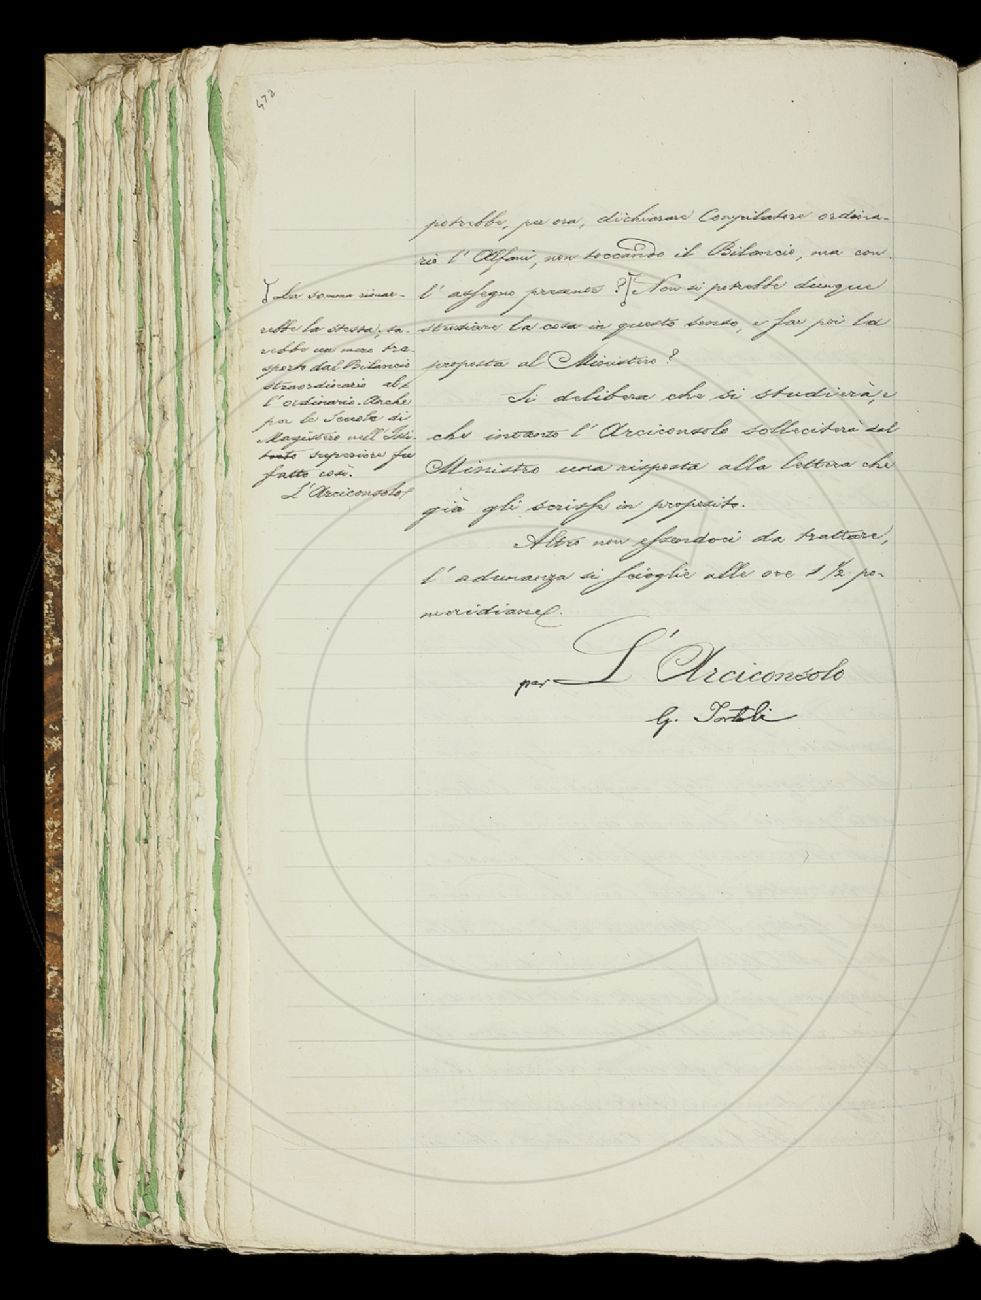 472
potrebbe, per ora, dichiarare Compilatore ordina-
rio l'Alfani, non toccando il Bilancio, ma con
l'assegno presente? Non si potrebbe dunque
studiare la cosa in questo senso, e far poi la
proposta al Ministero?
Si delibera che si studierà, e
che intanto l'Arciconsolo solleciterà dal
Ministro una risposta alla lettera che
già gli scrisse in proposito.
Altro non essendoci da trattare,
l'adunanza si scioglie alle ore 1 1/2 po-
meridiane.
per L'Arciconsolo
G. Tortoli
La somma rimar-
rebbe la stessa; sa-
rebbe un mero tra-
sporto dal Bilancio
straordinario al-
l'ordinario. Anche
per le Scuole di
Magistero nell'Isti-
tuto superiore fu
fatto così.
L'Arciconsolo